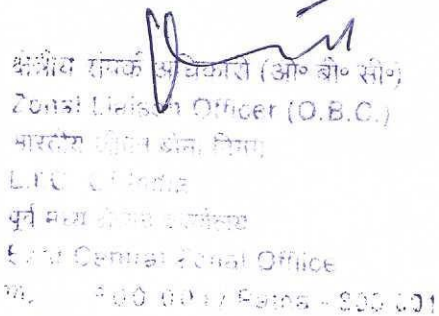 क्षेत्रीय संपर्क अधिकारी (ओ० बी० सी०)
Zonal Liaison Officer (O.B.C.)
भारतीय जीवन बीमा निगम
L.I.C. Of India
पूर्व मध्य क्षेत्रीय कार्यालय
Central Zonal Office
Patna - 800 001